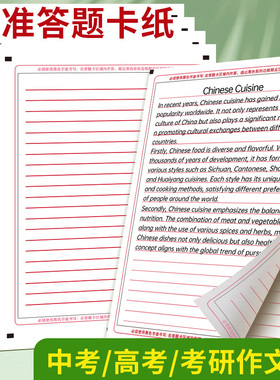 准答题卡纸
Chinese Cuisine
In recent years, Chinese cuisine has gained
popularity worldwide. It not only represents
culture of China but also plays a significant r
n promoting cultural exchanges between differ
countries.
Firstly, Chinese food is diverse and flavorful. W
thousands of years of development, it has for
various styles such as Sichuan, Cantonese, Sha
and Huaiyang cuisines. Each style has its uniq
and cooking methods, satisfying different prefe
of people around the world.
Secondly, Chinese cuisine emphasizes the balan
nutrition. The combination of meat and vegetab
along with the use of various spices and herbs, m
Chinese dishes not only delicious but also health
concept aligns with the global trend of pursu
中考/高考/考研作文